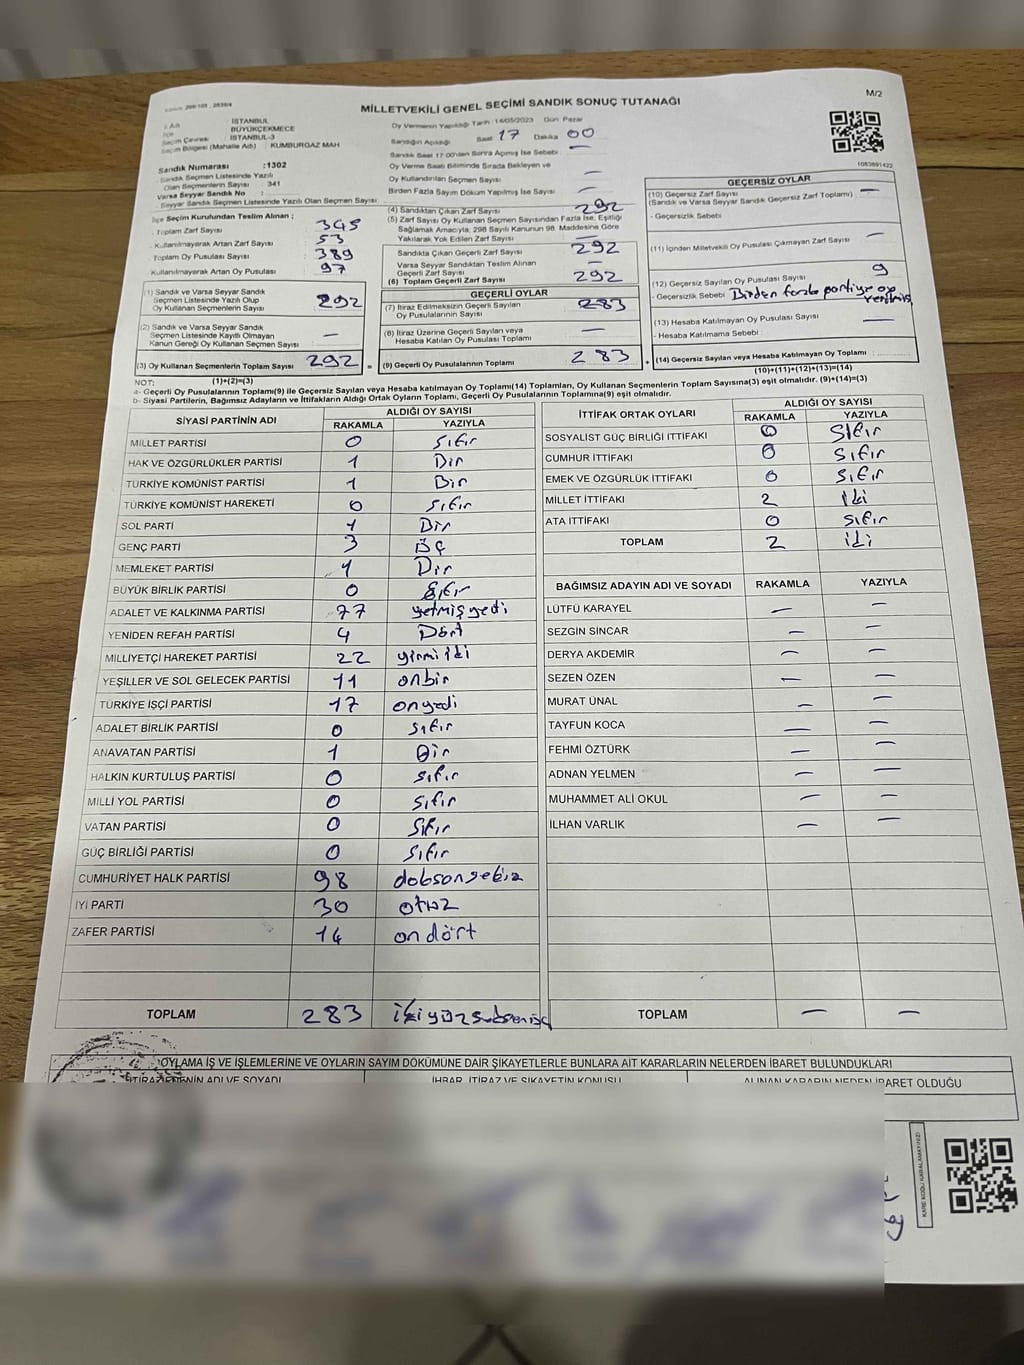 M/2
MİLLETVEKİLİ GENEL SEÇİMİ SANDIK SONUÇ TUTANAĞI
1083891422
: İSTANBUL
BÜYÜKÇEKMECE
: İSTANBUL-3
Seçim Bölgesi (Mahalle Adı) : KUMBURGAZ MAH
Sandık Numarası :1302
Sandık Seçmen Listesinde Yazılı
Olan Seçmenlerin Sayısı : 341
Varsa Seyyar Sandık No :
Seyyar Sandık Seçmen Listesinde Yazılı Olan Seçmen Sayısı
İlçe Seçim Kurulundan Teslim Alınan ;
Toplam Zarf Sayısı 345
Kullanılmayarak Artan Zarf Sayısı 53
Toplam Oy Pusulası Sayısı 389
Kullanılmayarak Artan Oy Pusulası 97
(1) Sandık ve Varsa Seyyar Sandık
Seçmen Listesinde Yazılı Olup
Oy Kullanan Seçmenlerin Sayısı 292
(2) Sandık ve Varsa Seyyar Sandık
Seçmen Listesinde Kayıtlı Olmayan
Kanun Gereği Oy Kullanan Seçmen Sayısı —
(3) Oy Kullanan Seçmenlerin Toplam Sayısı 292 =
Oy Vermenin Yapıldığı Tarih : 14/05/2023 Gün: Pazar
Sandığın Açıldığı Saat 17 Dakika 00
Sandık Saat 17:00'den Sonra Açılmış İse Sebebi : —
Oy Verme Saati Bitiminde Sırada Bekleyen ve
Oy Kullandırılan Seçmen Sayısı —
Birden Fazla Sayım Döküm Yapılmış İse Sayısı : —
(4) Sandıktan Çıkan Zarf Sayısı 292
(5) Zarf Sayısı Oy Kullanan Seçmen Sayısından Fazla İse, Eşitliği
Sağlamak Amacıyla, 298 Sayılı Kanunun 98. Maddesine Göre
Yakılarak Yok Edilen Zarf Sayısı —
Sandıkta Çıkan Geçerli Zarf Sayısı 292
Varsa Seyyar Sandıktan Teslim Alınan
Geçerli Zarf Sayısı —
(6) Toplam Geçerli Zarf Sayısı 292
GEÇERLİ OYLAR
(7) İtiraz Edilmeksizin Geçerli Sayılan
Oy Pusulalarının Sayısı 283
(8) İtiraz Üzerine Geçerli Sayılan veya
Hesaba Katılan Oy Pusulası Toplamı —
(9) Geçerli Oy Pusulalarının Toplamı 283 +
GEÇERSİZ OYLAR
(10) Geçersiz Zarf Sayısı
(Sandık ve Varsa Seyyar Sandık Geçersiz Zarf Toplamı) —
- Geçersizlik Sebebi
(11) İçinden Milletvekili Oy Pusulası Çıkmayan Zarf Sayısı —
(12) Geçersiz Sayılan Oy Pusulası Sayısı 9
- Geçersizlik Sebebi Birden fazla partiye oy
verilmiş
(13) Hesaba Katılmayan Oy Pusulası Sayısı —
- Hesaba Katılmama Sebebi :
(14) Geçersiz Sayılan veya Hesaba Katılmayan Oy Toplamı :
(10)+(11)+(12)+(13)=(14)
NOT: (1)+(2)=(3)
a- Geçerli Oy Pusulalarının Toplamı(9) ile Geçersiz Sayılan veya Hesaba katılmayan Oy Toplamı(14) Toplamları, Oy Kullanan Seçmenlerin Toplam Sayısına(3) eşit olmalıdır. (9)+(14)=(3)
b- Siyasi Partilerin, Bağımsız Adayların ve İttifakların Aldığı Ortak Oyların Toplamı, Geçerli Oy Pusulalarının Toplamına(9) eşit olmalıdır.
SİYASİ PARTİNİN ADI ALDIĞI OY SAYISI
RAKAMLA YAZIYLA
MİLLET PARTİSİ 0 sıfır
HAK VE ÖZGÜRLÜKLER PARTİSİ 1 Bir
TÜRKİYE KOMÜNİST PARTİSİ 1 Bir
TÜRKİYE KOMÜNİST HAREKETİ 0 sıfır
SOL PARTİ 1 Bir
GENÇ PARTİ 3 Üç
MEMLEKET PARTİSİ 1 Bir
BÜYÜK BİRLİK PARTİSİ 0 Sıfır
ADALET VE KALKINMA PARTİSİ 77 yetmişyedi
YENİDEN REFAH PARTİSİ 4 Dört
MİLLİYETÇİ HAREKET PARTİSİ 22 yirmi iki
YEŞİLLER VE SOL GELECEK PARTİSİ 11 onbir
TÜRKİYE İŞÇİ PARTİSİ 17 onyedi
ADALET BİRLİK PARTİSİ 0 sıfır
ANAVATAN PARTİSİ 1 Bir
HALKIN KURTULUŞ PARTİSİ 0 sıfır
MİLLİ YOL PARTİSİ 0 sıfır
VATAN PARTİSİ 0 sıfır
GÜÇ BİRLİĞİ PARTİSİ 0 sıfır
CUMHURİYET HALK PARTİSİ 98 doksansekiz
İYİ PARTİ 30 otuz
ZAFER PARTİSİ 14 on dört
TOPLAM 283 ikiyüzseksenüç
İTTİFAK ORTAK OYLARI ALDIĞI OY SAYISI
RAKAMLA YAZIYLA
SOSYALİST GÜÇ BİRLİĞİ İTTİFAKI 0 sıfır
CUMHUR İTTİFAKI 0 sıfır
EMEK VE ÖZGÜRLÜK İTTİFAKI 0 sıfır
MİLLET İTTİFAKI 2 iki
ATA İTTİFAKI 0 sıfır
TOPLAM 2 iki
BAĞIMSIZ ADAYIN ADI VE SOYADI RAKAMLA YAZIYLA
LÜTFÜ KARAYEL — —
SEZGİN SİNCAR — —
DERYA AKDEMİR — —
SEZEN ÖZEN — —
MURAT ÜNAL — —
TAYFUN KOCA — —
FEHMİ ÖZTÜRK — —
ADNAN YELMEN — —
MUHAMMET ALİ OKUL — —
İLHAN VARLIK — —
TOPLAM — —
OYLAMA İŞ VE İŞLEMLERİNE VE OYLARIN SAYIM DÖKÜMÜNE DAİR ŞİKAYETLERLE BUNLARA AİT KARARLARIN NELERDEN İBARET BULUNDUKLARI
İTİRAZ EDENİN ADI VE SOYADI İHBAR, İTİRAZ VE ŞİKAYETİN KONUSU ALINAN KARARIN NEDEN İBARET OLDUĞU
KARE KODU KARALAMAYINIZ!